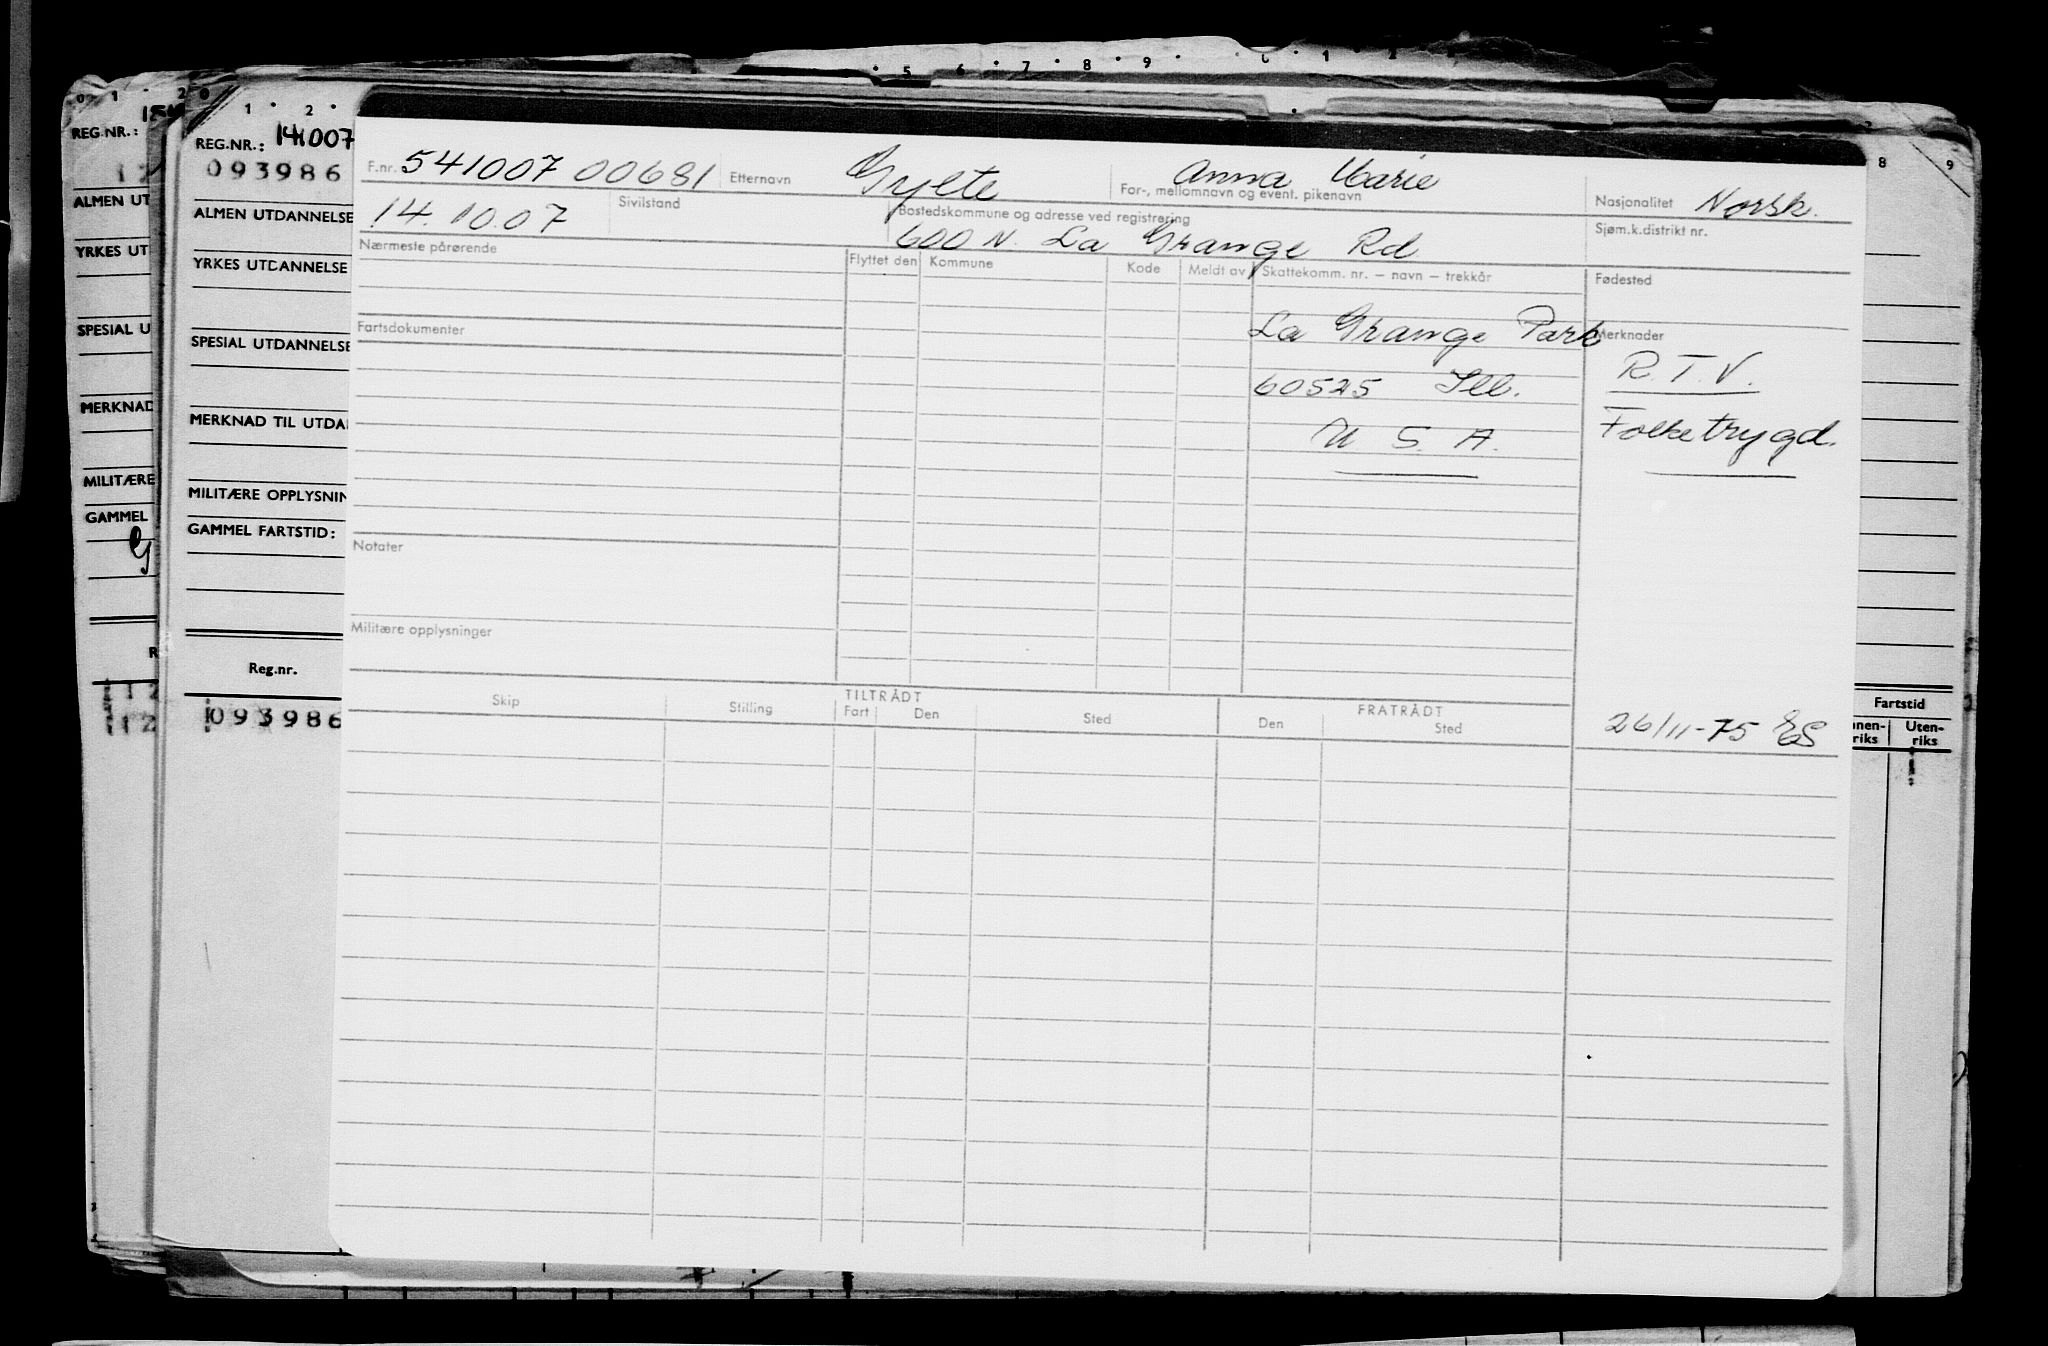 5 6 7 8 9 0 1 2
0 1 2 0
REG.NR.:
ALMEN UT
YRKES UT
SPESIAL U
MERKNAD
MILITÆRE
GAMMEL
G
R
1 2
1 2
1 2
REG.NR.: 141007
093986
ALMEN UTDANNELSE
YRKES UTDANNELSE
SPESIAL UTDANNELSE
MERKNAD TIL UTDA
MILITÆRE OPPLYSNIN
GAMMEL FARTSTID:
Reg.nr.
093986
F.nr. 541007 00681 Etternavn Gylte Anna Marie
For-, mellomnavn og event. pikenavn
Nasjonalitet Norsk.
14.10.07 Sivilstand Bostedskommune og adresse ved registrering
600 N. La Grange Rd
Sjøm.k.distrikt nr.
Nærmeste pårørende Flyttet den Kommune Kode Meldt av Skattekomm. nr. – navn – trekkår Fødested
Fartsdokumenter La Grange Park Merknader
60525 Ill. R.T.V.
U. S. A. Folketrygd.
Notater
Militære opplysninger
TILTRÅDT FRATRÅDT
Skip Stilling Fart Den Sted Den Sted
26/11-75 ES
8 9
Fartstid
nen-riks Uten-riks